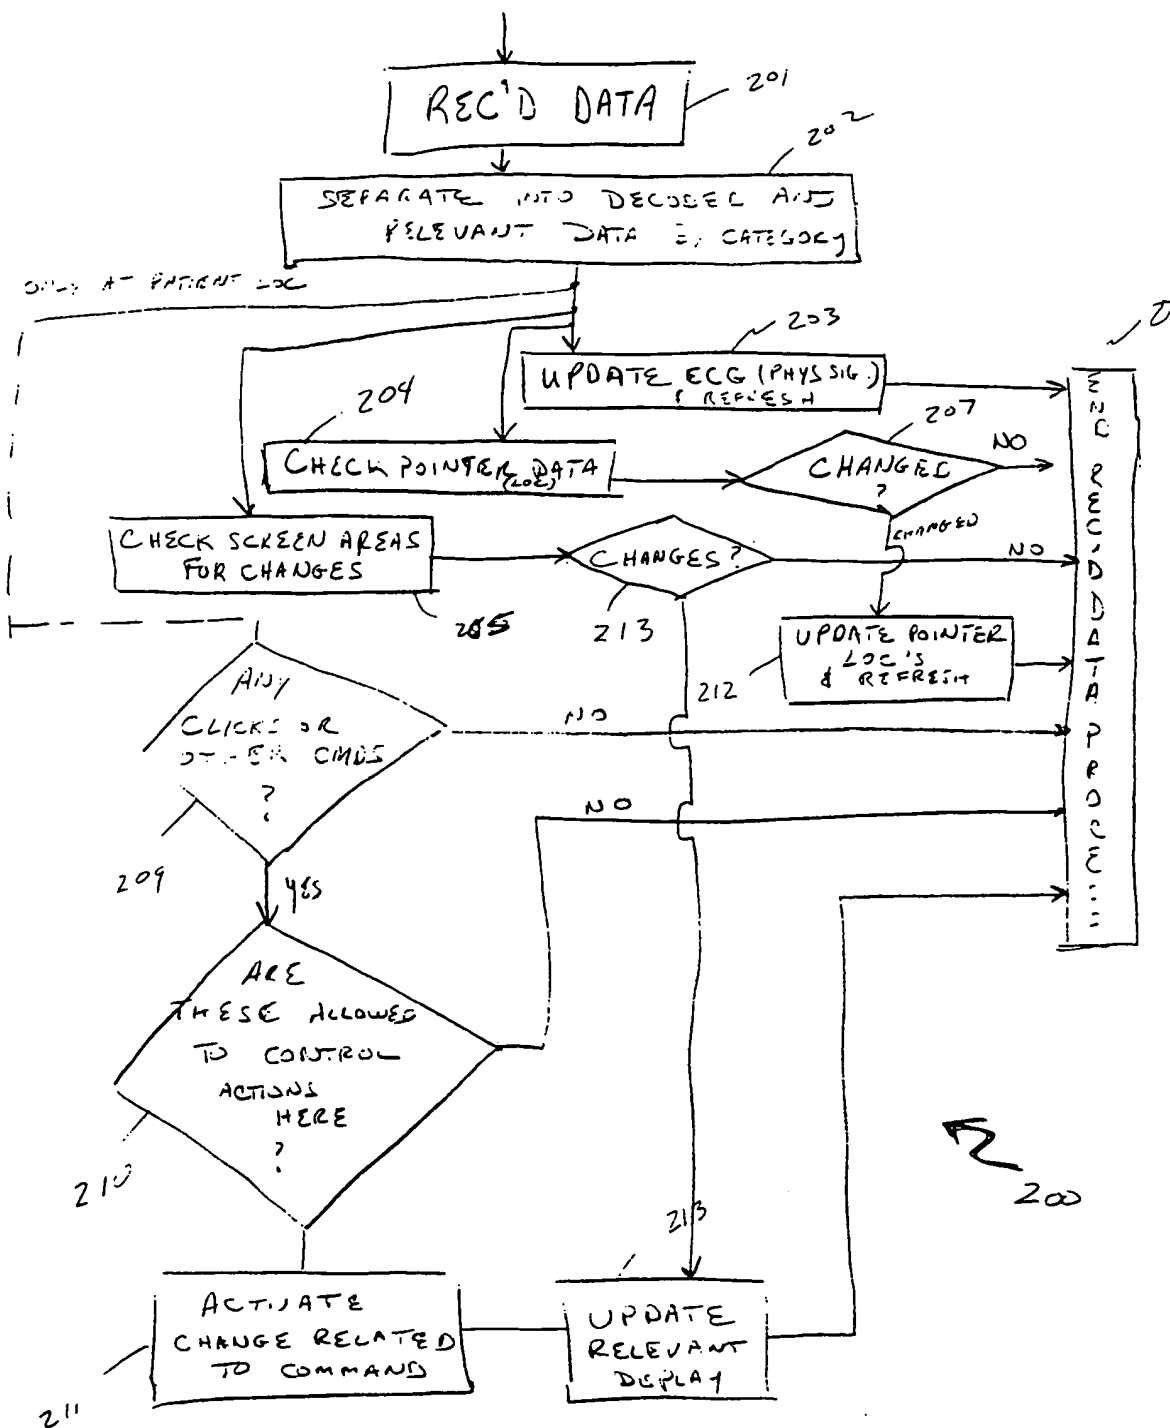 REC'D DATA
201
202
SEPARATE INTO DECODED AND
RELEVANT DATA BY CATEGORY
ONLY AT PATIENT LOC
203
UPDATE ECG (PHYS SIG.)
& REFRESH
204
207
NO
CHECK POINTER DATA
(LOC)
CHANGES
?
CHANGED
CHECK SCREEN AREAS
FOR CHANGES
205
CHANGES?
NO
213
UPDATE POINTER
LOC'S
& REFRESH
212
END REC'D DATA PROCESS
ANY
CLICKS OR
OTHER CMDS
?
NO
209
YES
NO
ARE
THESE ALLOWED
TO CONTROL
ACTIONS
HERE
?
210
200
213
ACTIVATE
CHANGE RELATED
TO COMMAND
211
UPDATE
RELEVANT
DISPLAY